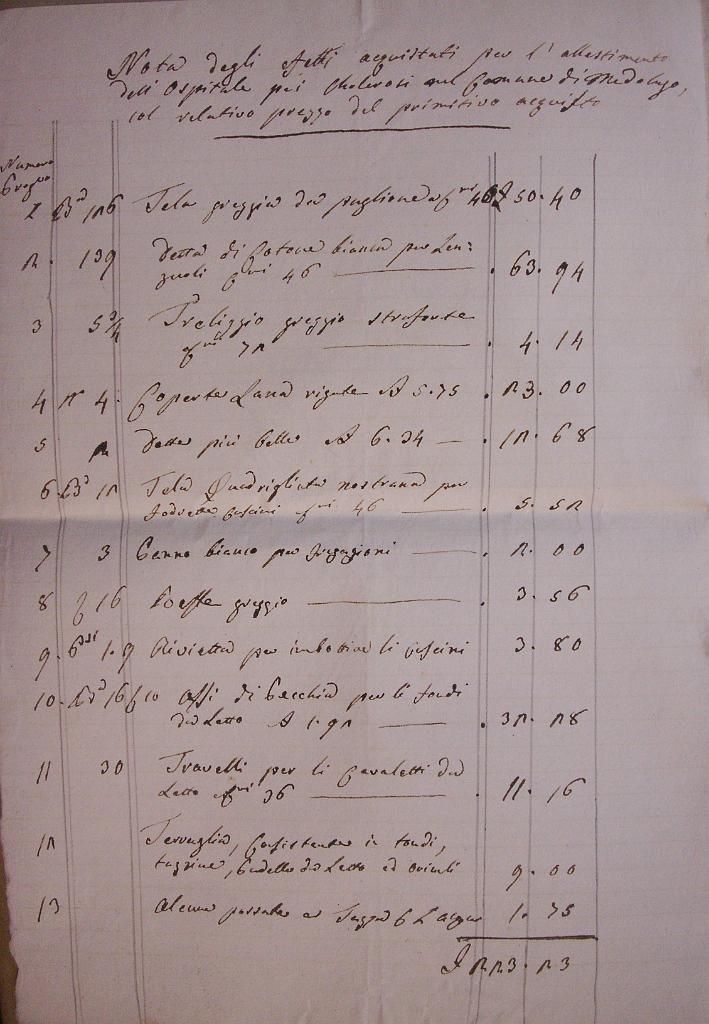 Nota degli effetti acquistati per l'allestimento
dell'Ospitale pei Cholerosi nel Comune di Medolago,
col relativo prezzo del primitivo acquisto
Numero
1 B.a 126 Tela greggia da paglione a 40 £ 50. 40
2. 139 Detta di Cotone bianca per Len=
zuoli 46 . 63. 94
3 5 3/4 Treliggio greggio straforte
72 . 4. 14
4 n° 4. Coperte Lana rigate A 5.75 . 23. 00
5 2 Dette più belle A 6.34 . 12. 68
6. B.a 12 Tela Quadrigliata nostrana per
fodrette cuscini 46 . 5. 52
7 3 Panno bianco per fregagioni . 2. 00
8 16 greggio . 3. 56
9. 1.9 per imbottire li cuscini 3. 80
10. 16 10 Assi di Pecchia per li fondi
da Letto A 1.92 . 32. 28
11 30 Travelli per li Cavaletti da
Letto 36 . 11. 16
12 Terraglia, Consistente in tondi,
tazzine, da Letto ed orinali 9. 00
13 Alcune 1. 75
£ 223. 23